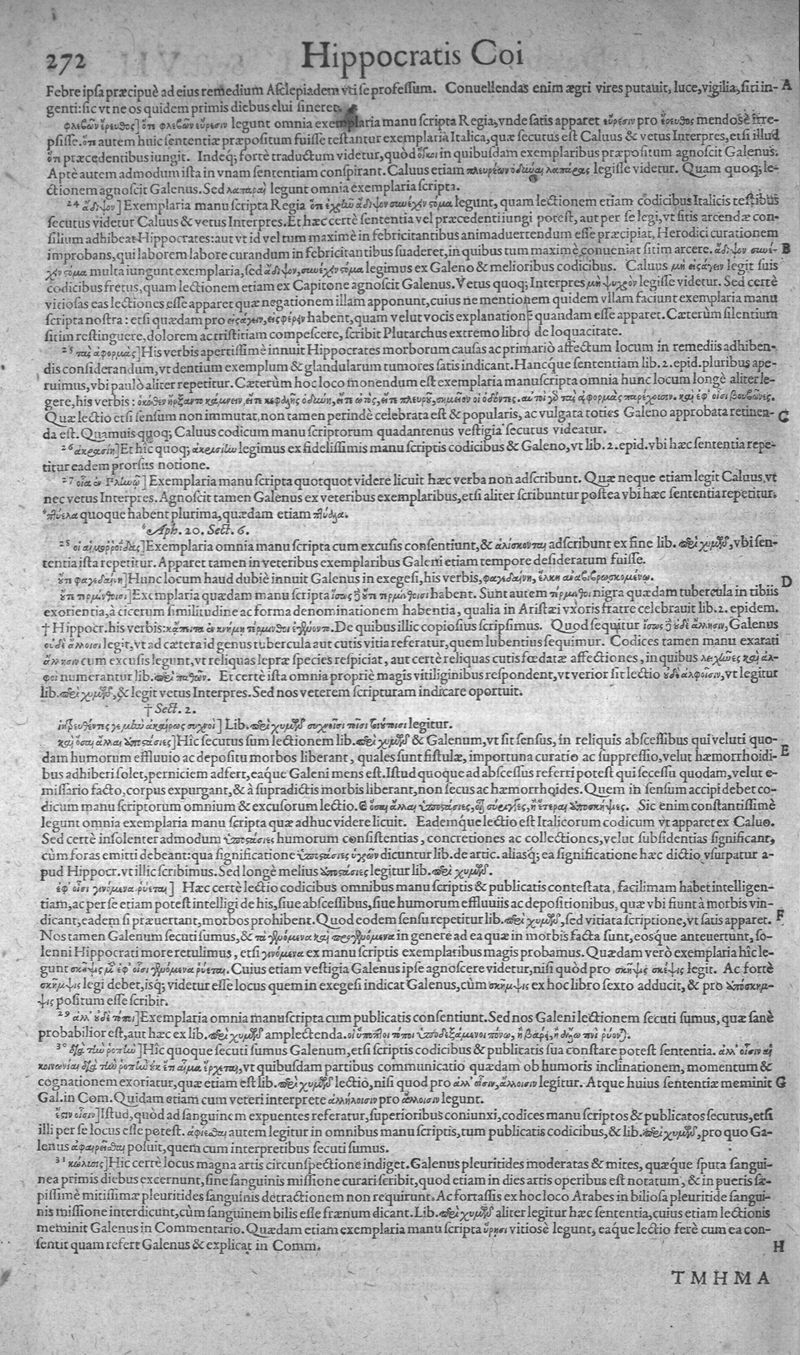 272 Hippocratis Coi
Febre ipsa præcipuè ad eius remedium Asclepiadem vti se professum. Conuellendas enim ægri vires putauit, luce, vigilia, siti in- A
genti: sic vt ne os quidem primis diebus elui sineret.
legunt omnia exemplaria manu scripta Regia, vnde satis apparet εὕρεσιν pro ἔρευθος mendosè irre-
psisse. ὅτι autem huic sententiæ præpositum fuisse testantur exemplaria Italica, quæ secutus est Caluus & vetus Interpres, etsi illud
ὅτι præcedentibus iungit. Indeq; fortè traductum videtur, quòd in quibusdam exemplaribus præpositum agnoscit Galenus.
Aptè autem admodum ista in vnam sententiam conspirant. Caluus etiam legisse videtur. Quam quoq; le-
ctionem agnoscit Galenus. Sed λαπάραι legunt omnia exemplaria scripta.
24 ἄδιψον] Exemplaria manu scripta Regia legunt, quam lectionem etiam codicibus Italicis testibus
secutus videtur Caluus & vetus Interpres. Et hæc certè sententia vel præcedenti iungi potest, aut per se legi, vt sitis arcendæ con-
silium adhibeat Hippocrates: aut vt id vel tum maximè in febricitantibus animaduertendum esse præcipiat, Herodici curationem
improbans, qui laborem labore curandum in febricitantibus suaderet, in quibus tum maximè conueniat sitim arcere. B
multa iungunt exemplaria, sed legimus ex Galeno & melioribus codicibus. Caluus μὴ εἰσάγειν legit suis
codicibus fretus, quam lectionem etiam ex Capitone agnoscit Galenus. Vetus quoq; Interpres μὴ ψυχρὸν legisse videtur. Sed certè
vitiosas eas lectiones esse apparet quæ negationem illam apponunt, cuius ne mentionem quidem vllam faciunt exemplaria manu
scripta nostra: etsi quædam pro εἰσάγειν, εἰσφέρειν habent, quam velut vocis explanationē quandam esse apparet. Cæterùm silentium
sitim restinguere, dolorem ac tristitiam compescere, scribit Plutarchus extremo libro de loquacitate.
25 τὰς ἀφορμὰς] His verbis apertissimè innuit Hippocrates morborum causas ac primariò affectum locum in remediis adhiben-
dis considerandum, vt dentium exemplum & glandularum tumores satis indicant. Hancque sententiam lib. 2. epid. pluribus ape-
ruimus, vbi paulò aliter repetitur. Cæterùm hoc loco monendum est exemplaria manuscripta omnia hunc locum longè aliter le-
gere, his verbis:
Quæ lectio etsi sensum non immutat, non tamen perindè celebrata est & popularis, ac vulgata toties Galeno approbata retinea- C
da est. Quamuis quoq; Caluus codicum manu scriptorum quadantenus vestigia secutus videatur.
26 Et hic quoq; legimus ex fidelissimis manu scriptis codicibus & Galeno, vt lib. 2. epid. vbi hæc sententia repe-
titur eadem prorsus notione.
27 Exemplaria manu scripta quotquot videre licuit hæc verba non adscribunt. Quæ neque etiam legit Caluus, vt
nec vetus Interpres. Agnoscit tamen Galenus ex veteribus exemplaribus, etsi aliter scribuntur postea vbi hæc sententia repetitur.
* πύελα quoque habent plurima, quædam etiam
* Aph. 20. Sect. 6.
28 οἱ αἱμοῤῥοΐδας] Exemplaria omnia manu scripta cum excusis consentiunt, & ἁλίσκονται adscribunt ex fine lib. περὶ χυμῶν, vbi sen-
tentia ista repetitur. Apparet tamen in veteribus exemplaribus Galeni etiam tempore desideratum fuisse.
οὔτε φαγεδαίνῃ] Hunc locum haud dubiè innuit Galenus in exegesi, his verbis, φαγεδαίνῃ, ἕλκει ἀναβιβρωσκομένῳ. D
οὔτε τερμίνθοισι] Exemplaria quædam manu scripta habent. Sunt autem τέρμινθοι nigra quædam tubercula in tibiis
exorientia, à cicerum similitudine ac forma denominationem habentia, qualia in Aristæi vxoris fratre celebrauit lib. 2. epidem.
† Hippocr. his verbis: De quibus illic copiosius scripsimus. Quod sequitur Galenus
οὐδὲ ἄλλοισι legit, vt ad cætera id genus tubercula aut cutis vitia referatur, quem lubentius sequimur. Codices tamen manu exarati
cum excusis legunt, vt reliquas lepræ species respiciat, aut certè reliquas cutis fœdatæ affectiones, in quibus λειχῆνες καὶ ἀλ-
φοὶ numerantur lib. περὶ παθῶν. Et certè ista omnia propriè magis vitiliginibus respondent, vt verior sit lectio οὐδὲ ἀλφοῖσιν, vt legitur
lib. περὶ χυμῶν, & legit vetus Interpres. Sed nos veterem scripturam indicare oportuit.
† Sect. 2.
Lib. περὶ χυμῶν legitur.
καὶ ὅσαι ἄλλαι ἀποστάσιες] Hîc secutus sum lectionem lib. περὶ χυμῶν & Galenum, vt sit sensus, in reliquis abscessibus qui veluti quo-
dam humorum effluuio ac depositu morbos liberant, quales sunt fistulæ, importuna curatio ac suppressio, velut hæmorrhoidi- E
bus adhiberi solet, perniciem adfert, eaque Galeni mens est. Istud quoque ad abscessus referri potest qui secessu quodam, velut e-
missario facto, corpus expurgant, & à supradictis morbis liberant, non secus ac hæmorrhoides. Quem in sensum accipi debet co-
dicum manu scriptorum omnium & excusorum lectio. Sic enim constantissimè
legunt omnia exemplaria manu scripta quæ adhuc videre licuit. Eademque lectio est Italicorum codicum vt apparet ex Caluo.
Sed certè insolenter admodum ὑποστάσιες humorum consistentias, concretiones ac collectiones, velut subsidentias significant,
cùm foras emitti debeant: qua significatione ὑποστάσιες dicuntur lib. de artic. aliasq; ea significatione hæc dictio vsurpatur a-
pud Hippocr. vt illic scribimus. Sed longè melius ἀποστάσιες legitur lib. περὶ χυμῶν.
ἐφ' οἷσι γινόμενα ῥύεται] Hæc certè lectio codicibus omnibus manu scriptis & publicatis contestata, facilimam habet intelligen-
tiam, ac per se etiam potest intelligi de his, siue abscessibus, siue humorum effluuiis ac depositionibus, quæ vbi fiunt à morbis vin-
dicant, eadem si præuertant, morbos prohibent. Quod eodem sensu repetitur lib. περὶ χυμῶν, sed vitiata scriptione, vt satis apparet. F
Nos tamen Galenum secuti sumus, & in genere ad ea quæ in morbis facta sunt, eosque anteuertunt, so-
lenni Hippocrati more retulimus, etsi γινόμενα ex manu scriptis exemplaribus magis probamus. Quædam verò exemplaria hîc le-
gunt Cuius etiam vestigia Galenus ipse agnoscere videtur, nisi quòd pro σκῆψις σκέψις legit. Ac fortè
σκῆμψις legi debet, isq; videtur esse locus quem in exegesi indicat Galenus, cùm σκῆμψις ex hoc libro sexto adducit, & pro ἀπόσκημ-
ψις positum esse scribit.
29 ἄλλ' οὐδὲ τόποι] Exemplaria omnia manu scripta cum publicatis consentiunt. Sed nos Galeni lectionem secuti sumus, quæ sanè
probabilior est, aut hæc ex lib. περὶ χυμῶν amplectenda.
30 διὰ τὴν ῥοπὴν] Hîc quoque secuti sumus Galenum, etsi scriptis codicibus & publicatis sua constare potest sententia.
vt quibusdam partibus communicatio quædam ob humoris inclinationem, momentum &
cognationem exoriatur, quæ etiam est lib. περὶ χυμῶν lectio, nisi quod pro legitur. Atque huius sententiæ meminit G
Gal. in Com. Quidam etiam cum veteri interprete ἀλλήλοισιν pro ἄλλοισιν legunt.
ἔστιν οἷσιν] Istud, quòd ad sanguinem expuentes referatur, superioribus coniunxi, codices manu scriptos & publicatos secutus, etsi
illi per se locus esse potest. autem legitur in omnibus manu scriptis, tum publicatis codicibus, & lib. περὶ χυμῶν, pro quo Ga-
lenus posuit, quem cum interpretibus secuti sumus.
31 κώλυσις] Hîc certè locus magna artis circunspectione indiget. Galenus pleuritides moderatas & mites, quæque sputa sangui-
nea primis diebus excernunt, sine sanguinis missione curari scribit, quod etiam in dies artis operibus est notatum, & in pueris sæ-
pissimè mitissimæ pleuritides sanguinis detractionem non requirunt. Ac fortassis ex hoc loco Arabes in biliosa pleuritide sangui-
nis missione interdicunt, cùm sanguinem bilis esse frænum dicant. Lib. περὶ χυμῶν aliter legitur hæc sententia, cuius etiam lectionis
meminit Galenus in Commentario. Quædam etiam exemplaria manu scripta vitiosè legunt, eaque lectio ferè cum ea con-
sentit quam refert Galenus & explicat in Comm. H
TMHMA